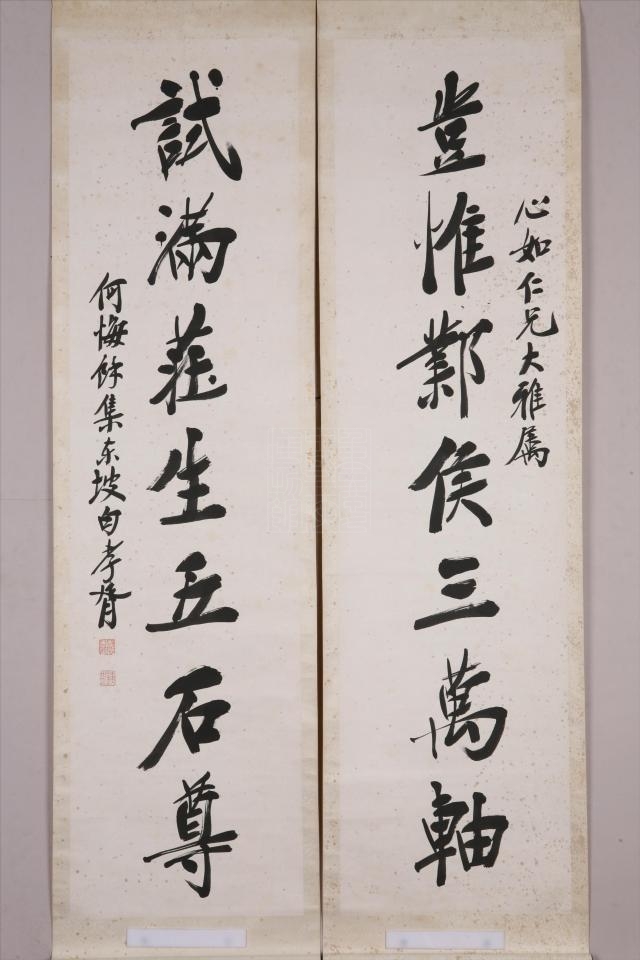 心如仁兄大雅属
豈惟鄴侯三萬軸
試滿莊生五石尊
何悔餘集东坡句孝胥